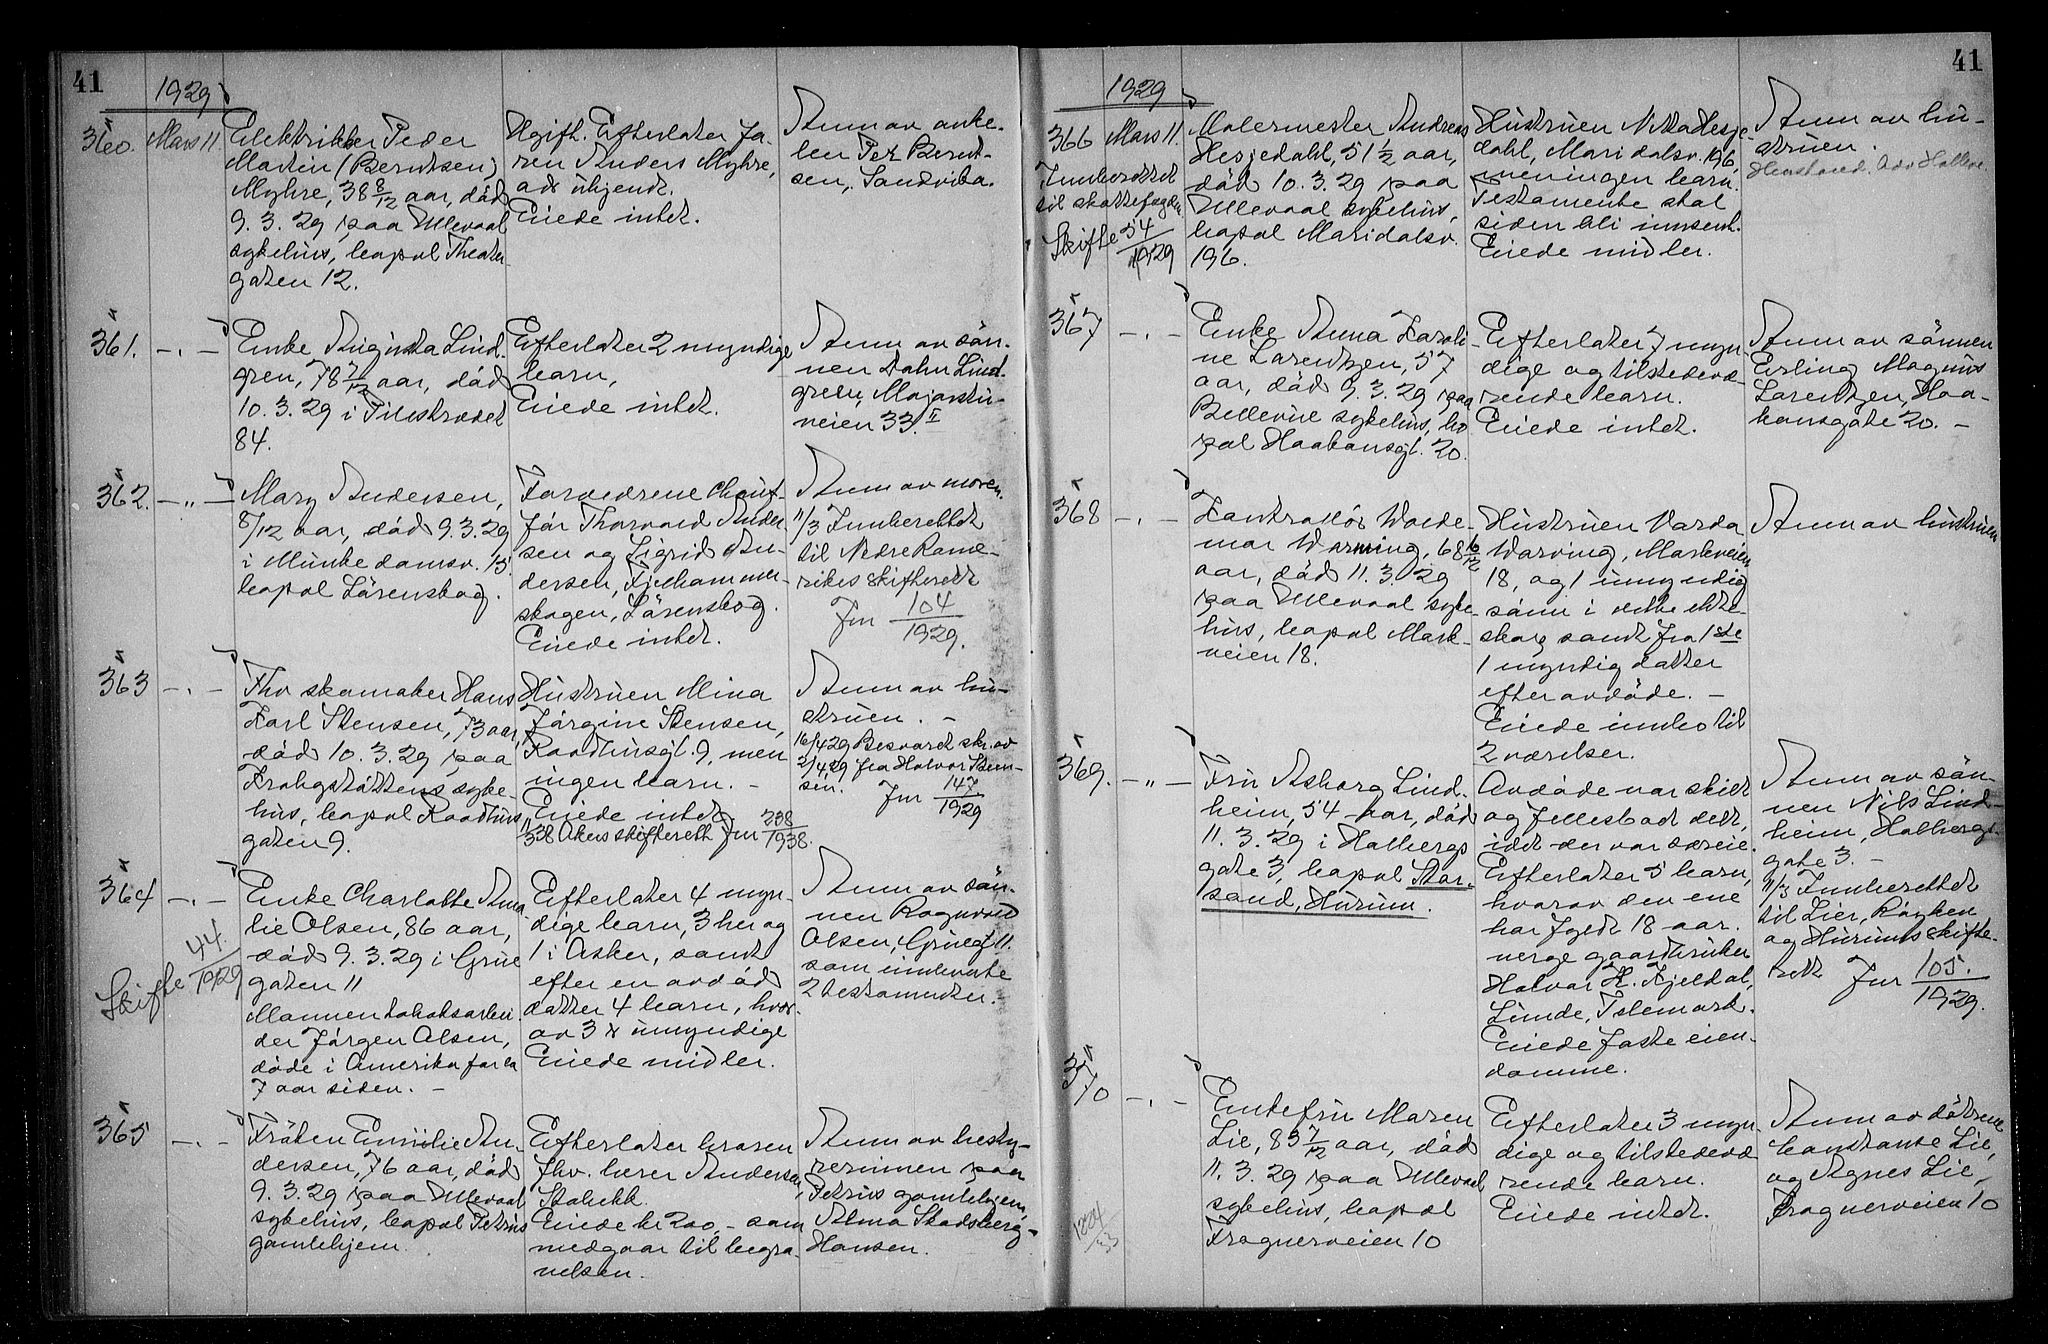 41
1929
360. Mars 11.
Elektrikker Peder
Martin (Berntsen)
Myhre, 38 8/12 aar, död
9.3.29 paa Ullevaal
sykehus, bopæl Theater-
gaten 12.
Ugift. Efterlater fa-
ren Anders Myhre,
adr ukjendt.
Eiede intet.
Anm av onke-
len Per Bernt-
sen, Sandvika.
361. -"-
Enke Augusta Lind-
gren, 78 7/12 aar, död
10.3.29 i Pilestrædet
84.
Efterlater 2 myndige
barn,
Eiede intet.
Anm av sön-
nen John Lind-
gren, Majorstu-
veien 33 II
362. -"-
Mary Andersen,
8/12 aar, död 9.3.29
i Munkedamsv. 15.
bopæl Lörenskog.
Forældrene Chauf-
för Thorvald Ander-
sen og Sigrid An-
dersen, Fjelhammer-
skogen, Lörenskog.
Eiede intet.
Anm av moren.
11/3 Innberettet
til Nedre Rome-
rikes skifterett
Jnr 104/1929.
363 -"-
Fhv skomaker Hans
Karl Stensen, 73 aar,
död 10.3.29 paa
Krohgstöttens syke-
hus, bopæl Raadhus
gaten 9.
Hustruen Mina
Jörgine Stensen,
Raadhusgt. 9, men
ingen barn. -
Eiede intet
Akers skifterett Jnr 238/1938.
Anm av hu-
struen. -
16/4 29 Besvaret skr. av
2/4 29 fra Halvor Sten-
sen. Jnr 147/1929
364 -"-
Skifte 44./1929
Enke Charlotte Ama-
lie Olsen, 86 aar,
död 9.3.29 i Grüe
gaten 11
Mannen tobaksarbei
der Jörgen Olsen,
döde i Amerika for ca
7 aar siden. -
Efterlater 4 myn-
dige barn, 3 her og
1 i Asker, samt
efter en avdöd
datter 4 barn, hvor-
av 3 umyndige
Eiede midler.
Anm av sön-
nen Ragnvald
Olsen, Grüegt 11.
som innleverte
2 testamenter.
365 -"-
Fröken Emilie An-
dersen, 76 aar, död
9.3.29 paa Ullevaal
sykehus, bopæl Petrus
gamlehjem.
Efterlater broren
fhv. lærer Andersen,
Stabekk.
Eiede kr 200,- som
medgaar til begra-
velsen.
Anm av besty-
rerinnen paa
Petrus gamlehjem,
Alma Skadsberg-
Hansen.
41
1929
366 Mars 11.
Innberettet
til skattefogden
Skifte 54/1929
Malermester Andreas
Hesjedahl, 51 1/2 aar,
död 10.3.29 paa
Ullevaal sykehus,
bopæl Maridalsv.
196.
Hustruen Netta Hesje
dahl, Maridalsv. 196,
men ingen barn.
Testamente skal
siden bli innsendt.
Eiede midler.
Anm av hu-
struen.
367 -"-
Enke Anna Karoli-
ne Larentzen, 57
aar, död 9.3.29 paa
Bellevue sykehus, bo
pæl Haakonsgt. 20.
Efterlater 7 myn-
dige og tilstedevæ-
rende barn.
Eiede intet.
Anm av sönnen
Erling Magnus
Larentzen, Haa-
konsgate 20. -
368 -"-
Kontrollör Walde-
mar Warming, 68 6/12
aar, död 11.3.29
paa Ullevaal syke-
hus, bopæl Mark-
veien 18.
Hustruen Varda
Warving, Markveien
18, og 1 umyndig
sönn i dette ekte-
skap samt fra 1ste
1 myndig datter
efter avdöde. -
Eiede innbo til
2 værelser.
Anm av hustruen
369. -"-
Fru Asborg Lind-
heim, 54 aar, död
11.3.29 i Holbergs
gate 3, bopæl Stor-
sand, Hurum.
Avdöde var skilt
og fellesbodelt,
idet der var særeie.
Efterlater 5 barn,
hvorav den ene
har fyldt 18 aar.
verge gaardbruker
Halvor K. Fjeldal,
Lunde, Telemark.
Eiede faste eien-
domme.
Anm av sön-
nen Nils Lind-
heim, Holbergs-
gate 3. -
11/3 Innberettet
til Lier, Röyken
og Hurums skifte-
rett Jnr 105./1929.
370 -"-
1204/33
Enkefru Maren
Lie, 83 7/12 aar, död
11.3.29 paa Ullevaal
sykehus, bopæl
Frognerveien 10
Efterlater 3 myn-
dige og tilstedevæ
rende barn.
Eiede intet.
Anm av dötrene
Constance Lie,
og Agnes Lie,
Frognerveien 10